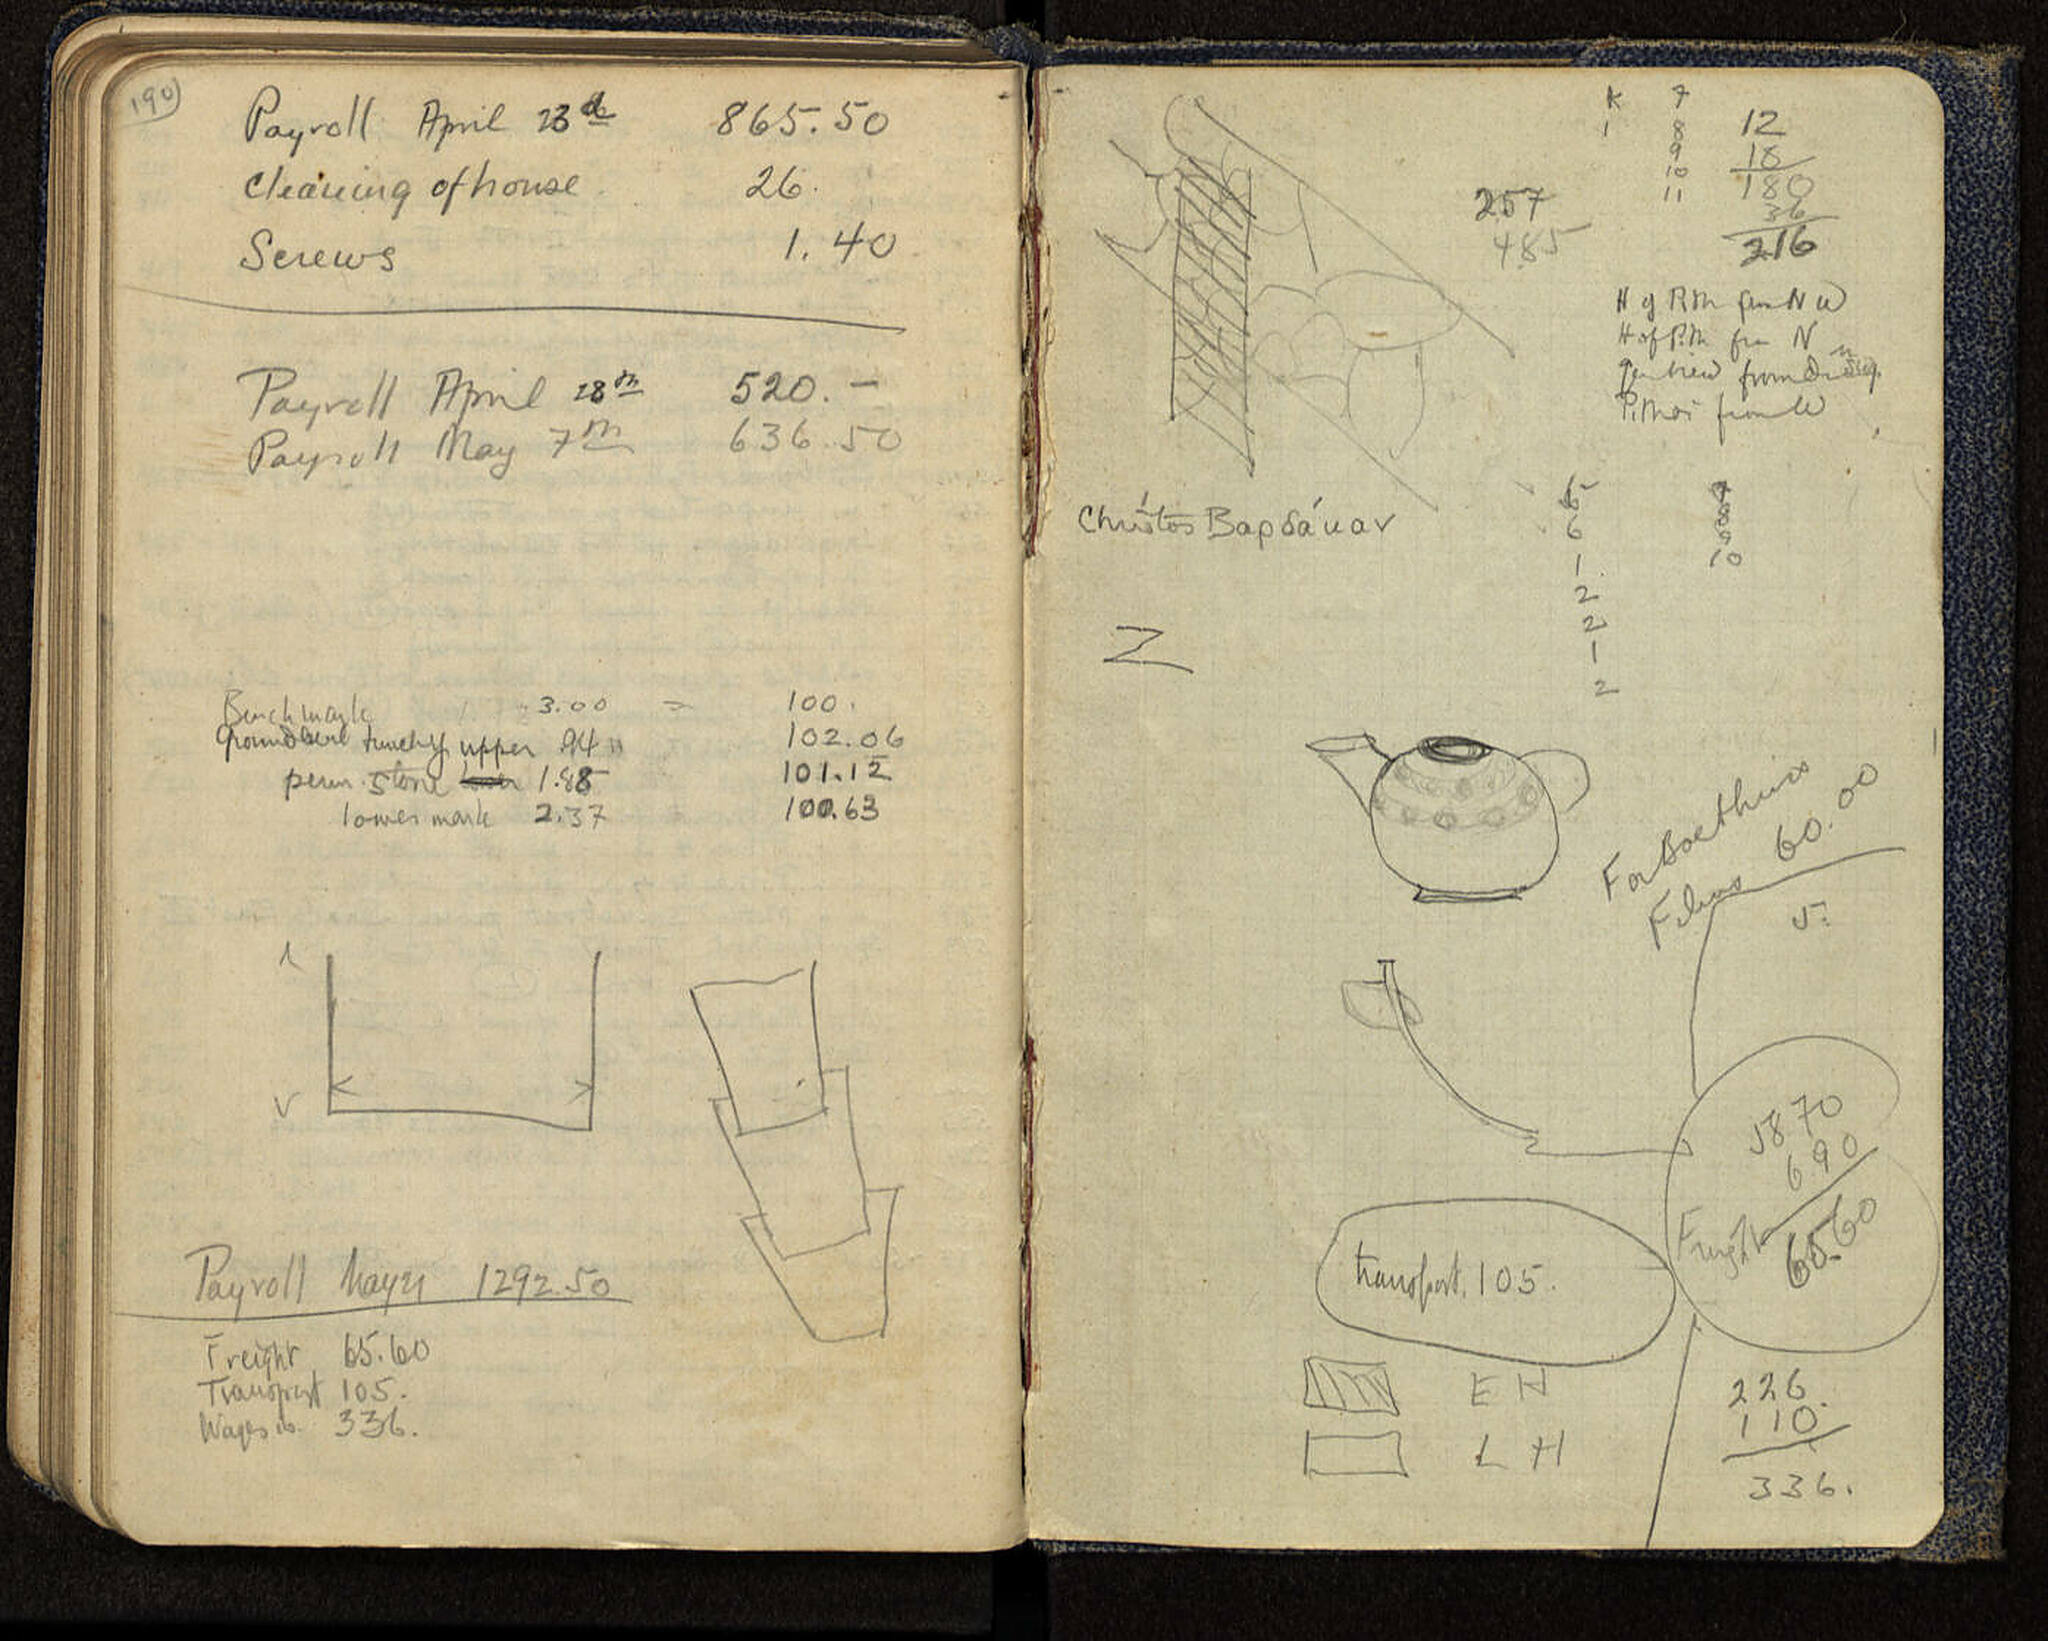 190
Payroll April 23d 865.50
Cleaning of house 26.
Screws 1.40
Payroll April 28th 520.—
Payroll May 7th 636.50
Bench mark 3.00 = 100.
upper .94 " 102.06
perm. stone 1.88 101.12
lower mark 2.37 = 100.63
Payroll May 21 1292.50
Freight 65.60
Transport 105.
Wages 336.
K 7
1 8
9
10
11
12
18
180
36
216
257
485
H of Pith from NW
H of Pith from N
Pithos from W
Christos Βαρδάκαν
6
1
2
2
1
2
10
Z
For Boethius
Films 60.00
5.
58 70
6 90
Freight 65.60
transport. 105.
E H
L H
226.
110.
336.